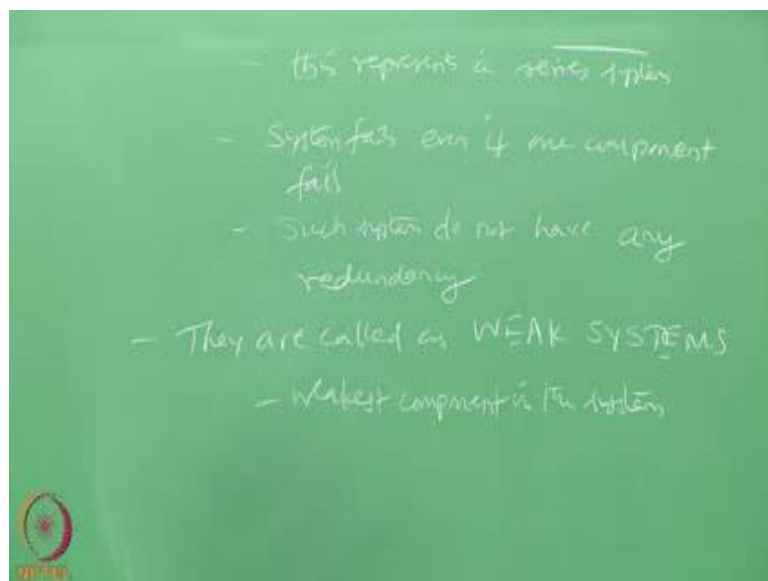 - this represents a series system
- System fails even if one component
fails
- Such system do not have any
redundancy
- They are called as WEAK SYSTEMS
- Weakest component in the system
NPTEL